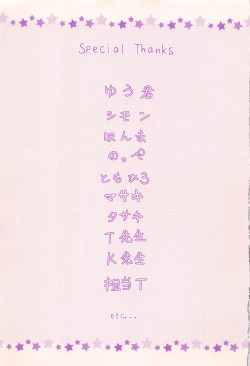 Special Thanks
ゆう君
シモン
ほんま
の。ぺ
ともひろ
マサキ
タサキ
T先生
K先生
担当T
etc...